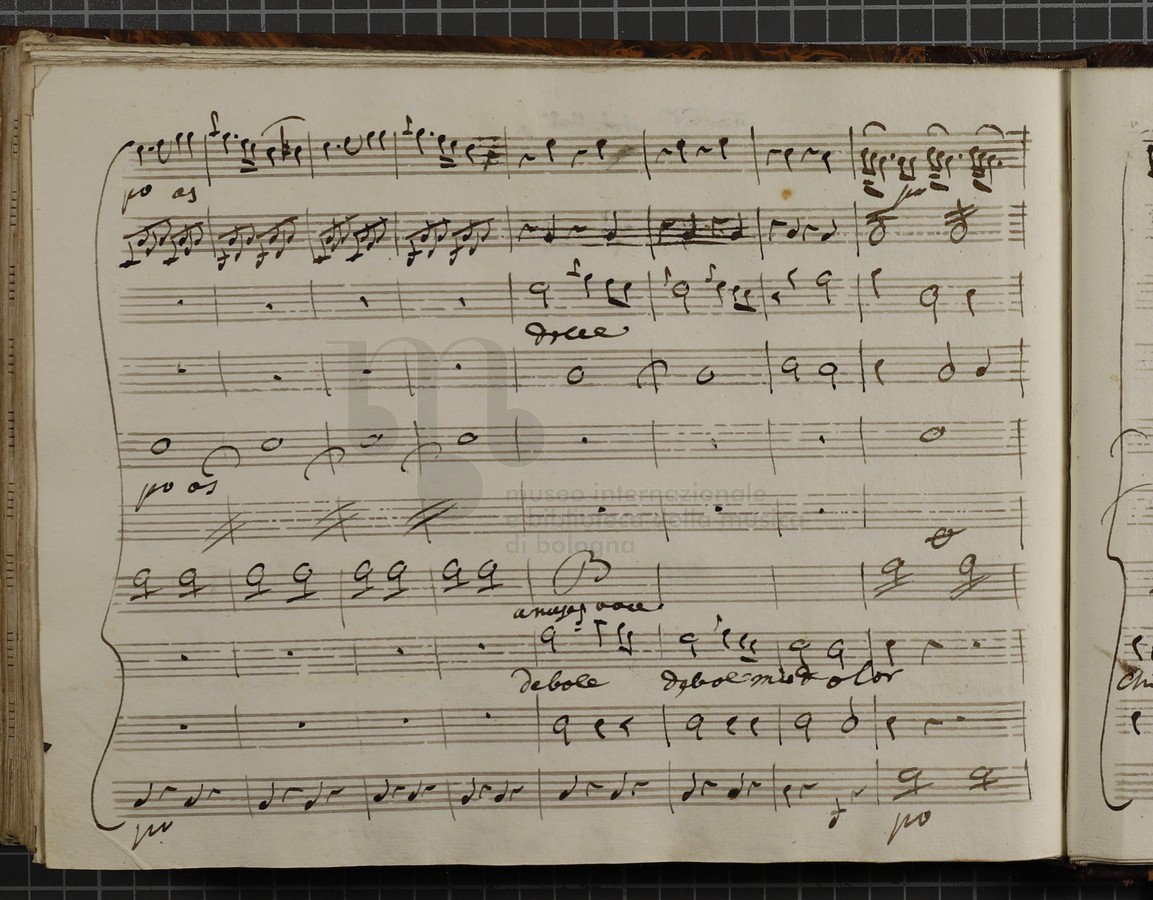 po as
po
dolce
po as
museo internazionale
e biblioteca della musica
di bologna
a mezza voce
debole debol mio dolor
po po